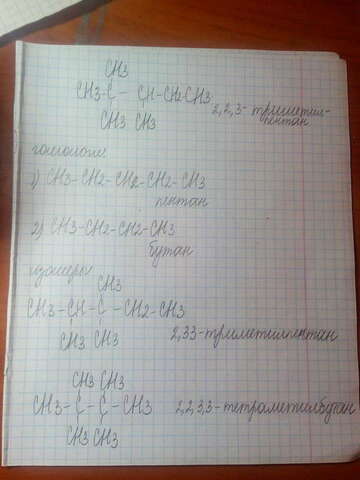 CH3
CH3-C - CH-CH2-CH3
CH3 CH3
2,2,3-триметил-
пентан
гомологи:
1) CH3-CH2-CH2-CH2-CH3
пентан
2) CH3-CH2-CH2-CH3
бутан
изомеры
CH3
CH3-CH-C-CH2-CH3
CH3 CH3
2,33-триметилпентан
CH3 CH3
CH3-C-C-CH3
CH3 CH3
2,2,3,3-тетраметилбутан